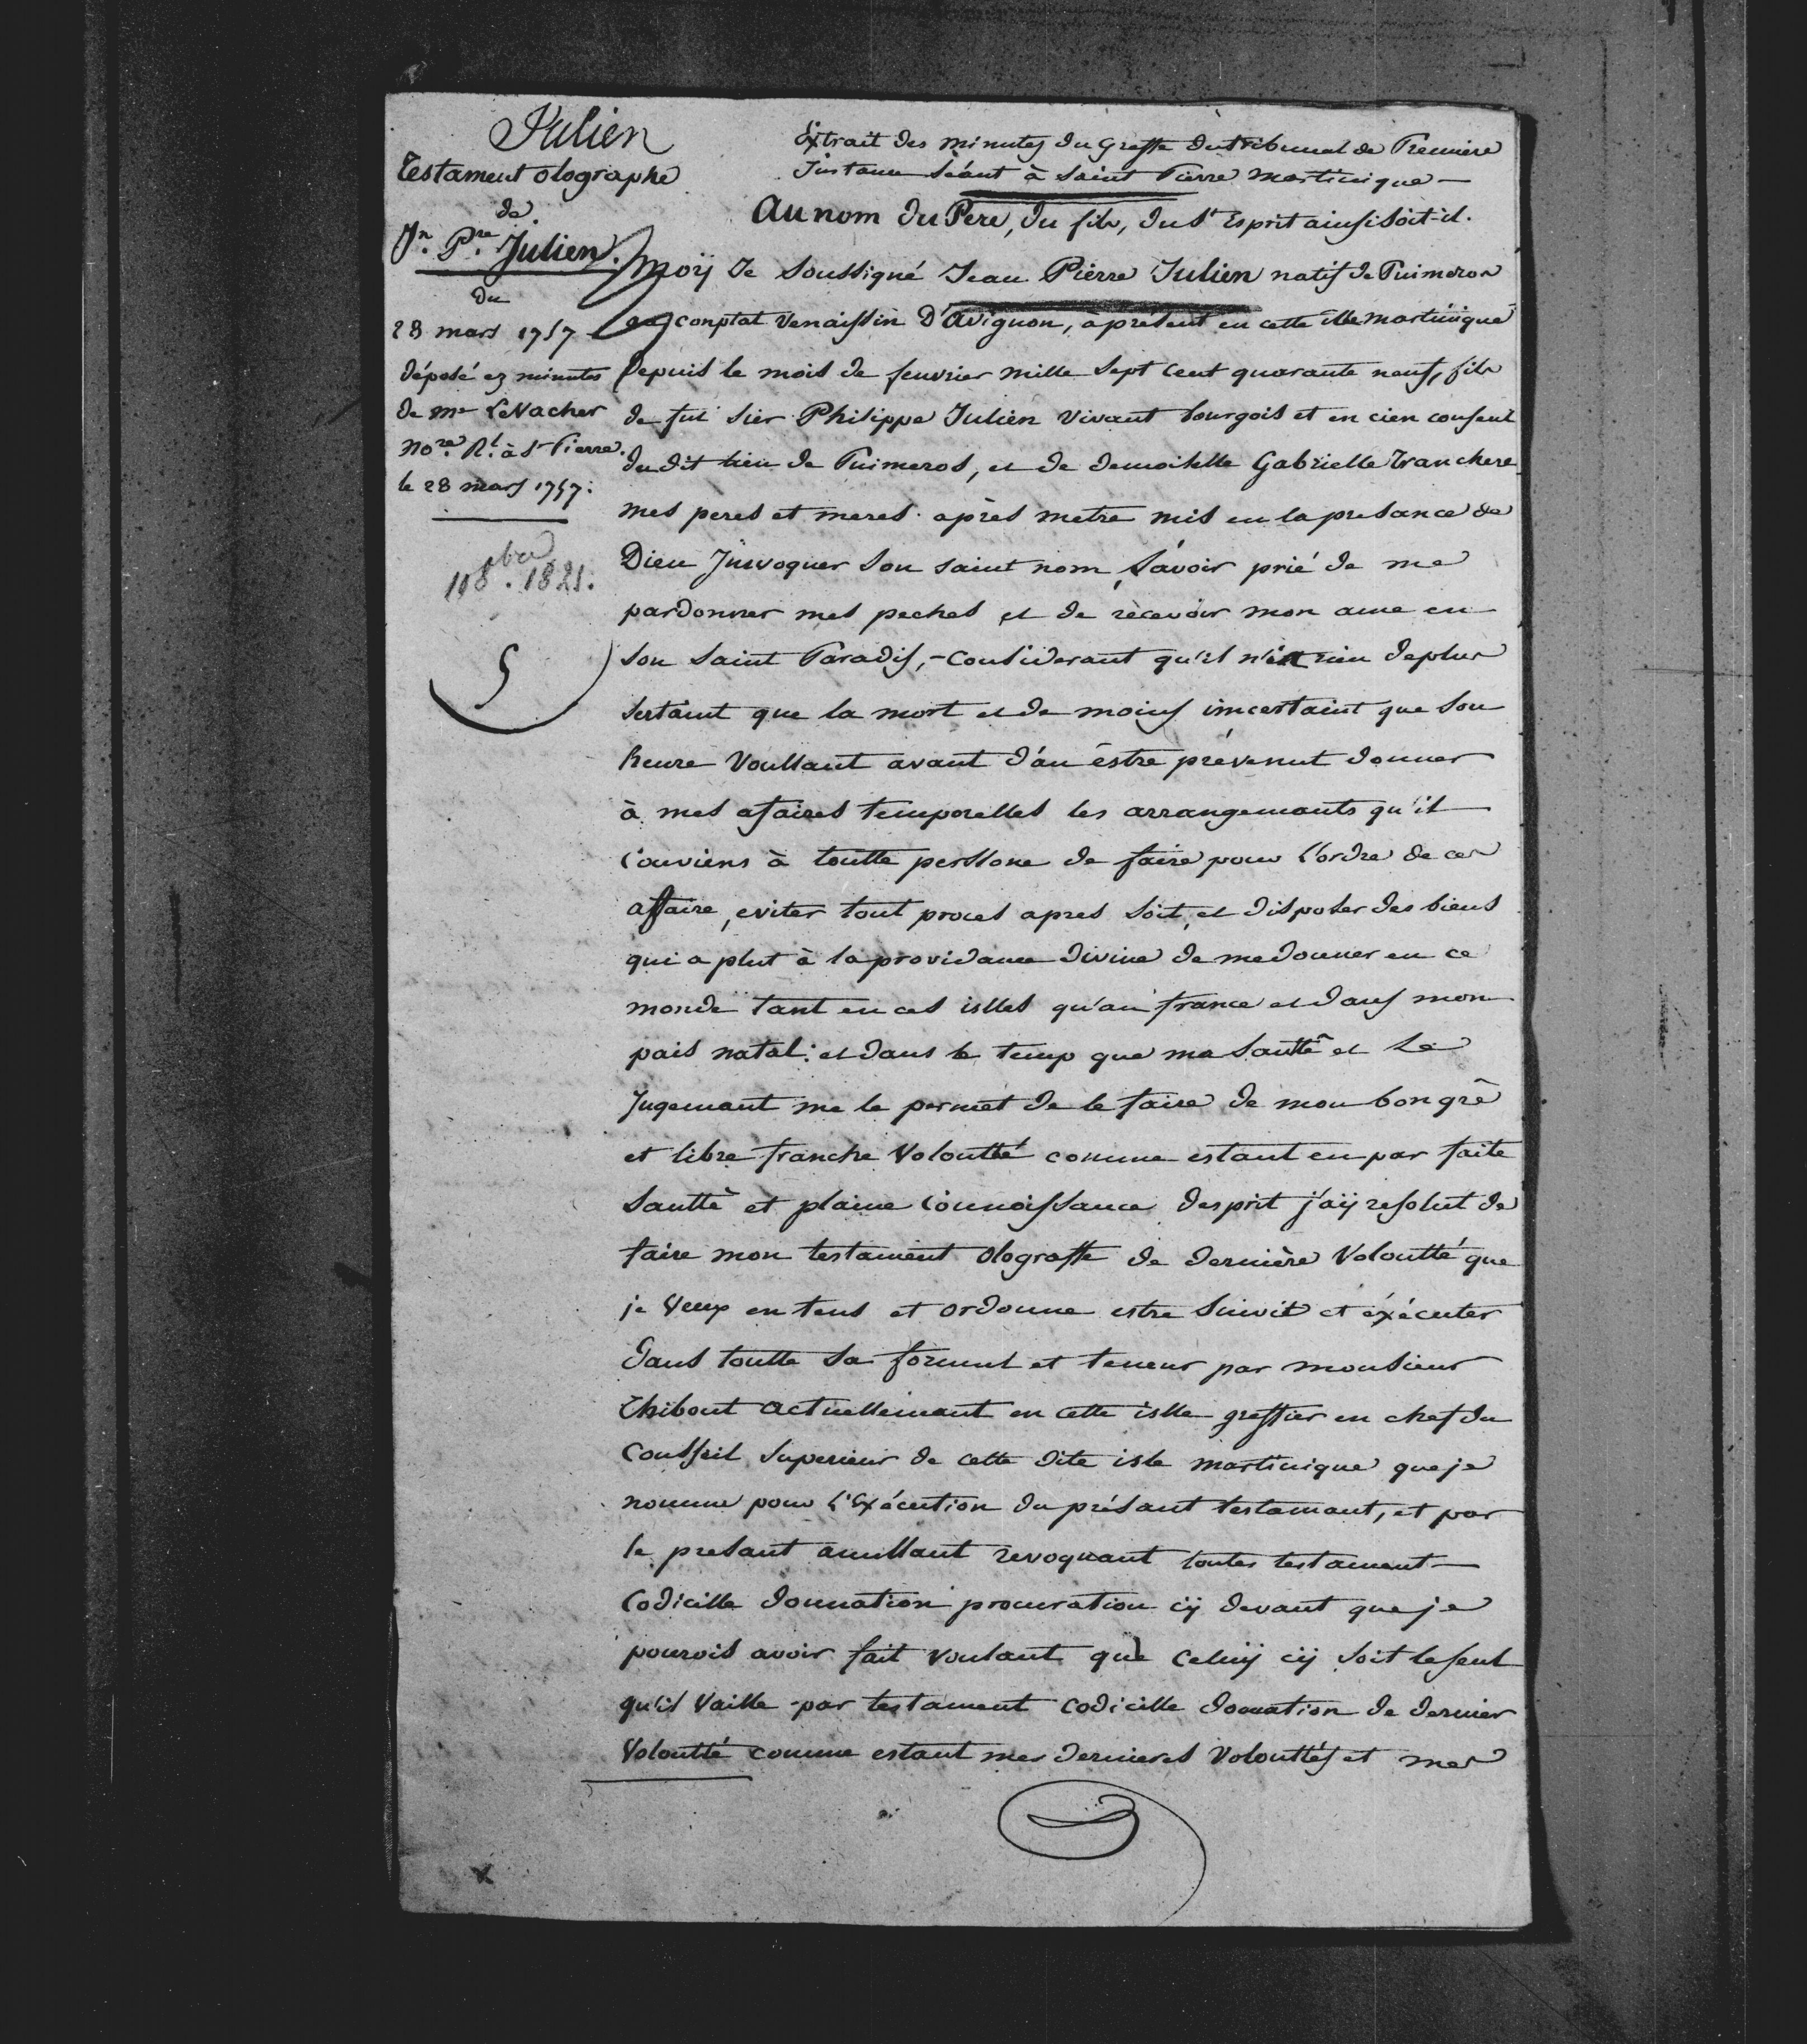 Julien
Testament olographe
de
Jn. Pre. Julien.
Du
28 mars 1757
déposé ez minutes
de me LeVacher
Nore. Rl. à St Pierre.
le 28 mars 1757.
8bre 1821.
5
Extrait des minutes du Greffe du tribunal de Premiere
Instance Séant à Saint Pierre Martinique
Au nom du Pere, du fils, du St Esprit ainsi soit-il.
Moÿ Je Soussigné Jean Pierre Julien natif de Puimeros
conptat Venaissin D'Avignon, àprésent en cette ille martinique
Depuis le mois de feuvrier mille Sept Cent quarante neuf, fils
de fut Sier Philippe Julien Vivant bourgois et en cien consent
du dit lieu de Puimeros, et de demoiselle Gabrielle Tranchere
mes peres et meres. après metre mis en la presance de
Dieu Jnvoquer Son saint nom, l'avoir prié de me
pardonner mes peches et de recevoir mon ame en
Son Saint Paradis, - Considerant qu'il n'est rien de plus
sertaint que la mort et de moins imcertaint que Son
heure Voullant avant d'an estre prévenut donner
à mes afaires temporelles les arrangemants qu'il
Conviens à toutte perssone de faire pour l'ordre de ces
affaire, eviter tout proces apres Soit, et disposer des biens
qui a plut à la providance divine de me donner en ce
monde tant en ces isles qu'an france et dans mon
pais natal: et dans le temp que ma Santté et Le
Jugemant me le permet de le faire de mon bon gré
et libre franche Volontté comme estant en par faite
Santté et plaine Connoissance desprit j'aÿ resolut de
faire mon testament Olograffe de dernière Volontté que
je Veux en tens et ordonne estre Suivit et éxécuter
Dans toutte Sa forme et teneur par monsieur
Thibout actuellemant en cette isle greffier en chef du
Consseil Superieur de cette dite isle martinique que je
nomme pour l'Exécution du présant testamant, et par
le presant anullant revoquant toutes testament
Codicille donnation procuration cÿ devant que je
pourois avoir fait voulant que Celuÿ cÿ soit le seul
qu'il Vaille par testament Codicille donnation de dernier
Volontté comme estant mes dernieres Volonttés et mes